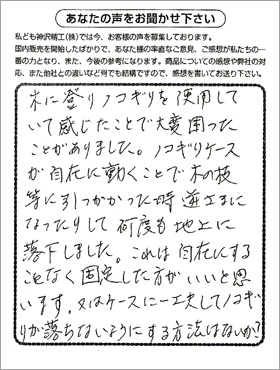 あなたの声をお聞かせ下さい
私ども神沢精工(株)では今、お客様の声を募集しております。
国内販売を開始したばかりで、あなた様の率直なご意見、ご感想が私たちの一
番の力となり、また、今後の参考になります。商品についての感想や弊社の対
応、また他社との違いなど何でも結構ですので、感想を書いてお送り下さい。
木に登りノコギリを使用して
いて感じたことで大変困った
ことがありました。ノコギリケース
が自在に動くことで木の枝
等に引っかかった時逆さまに
なったりして何度も地上に
落下しました。これは自在にする
ことなく固定した方がいいと思
います。又はケースに一工夫してノコギ
リが落ちないようにする方法はないか?